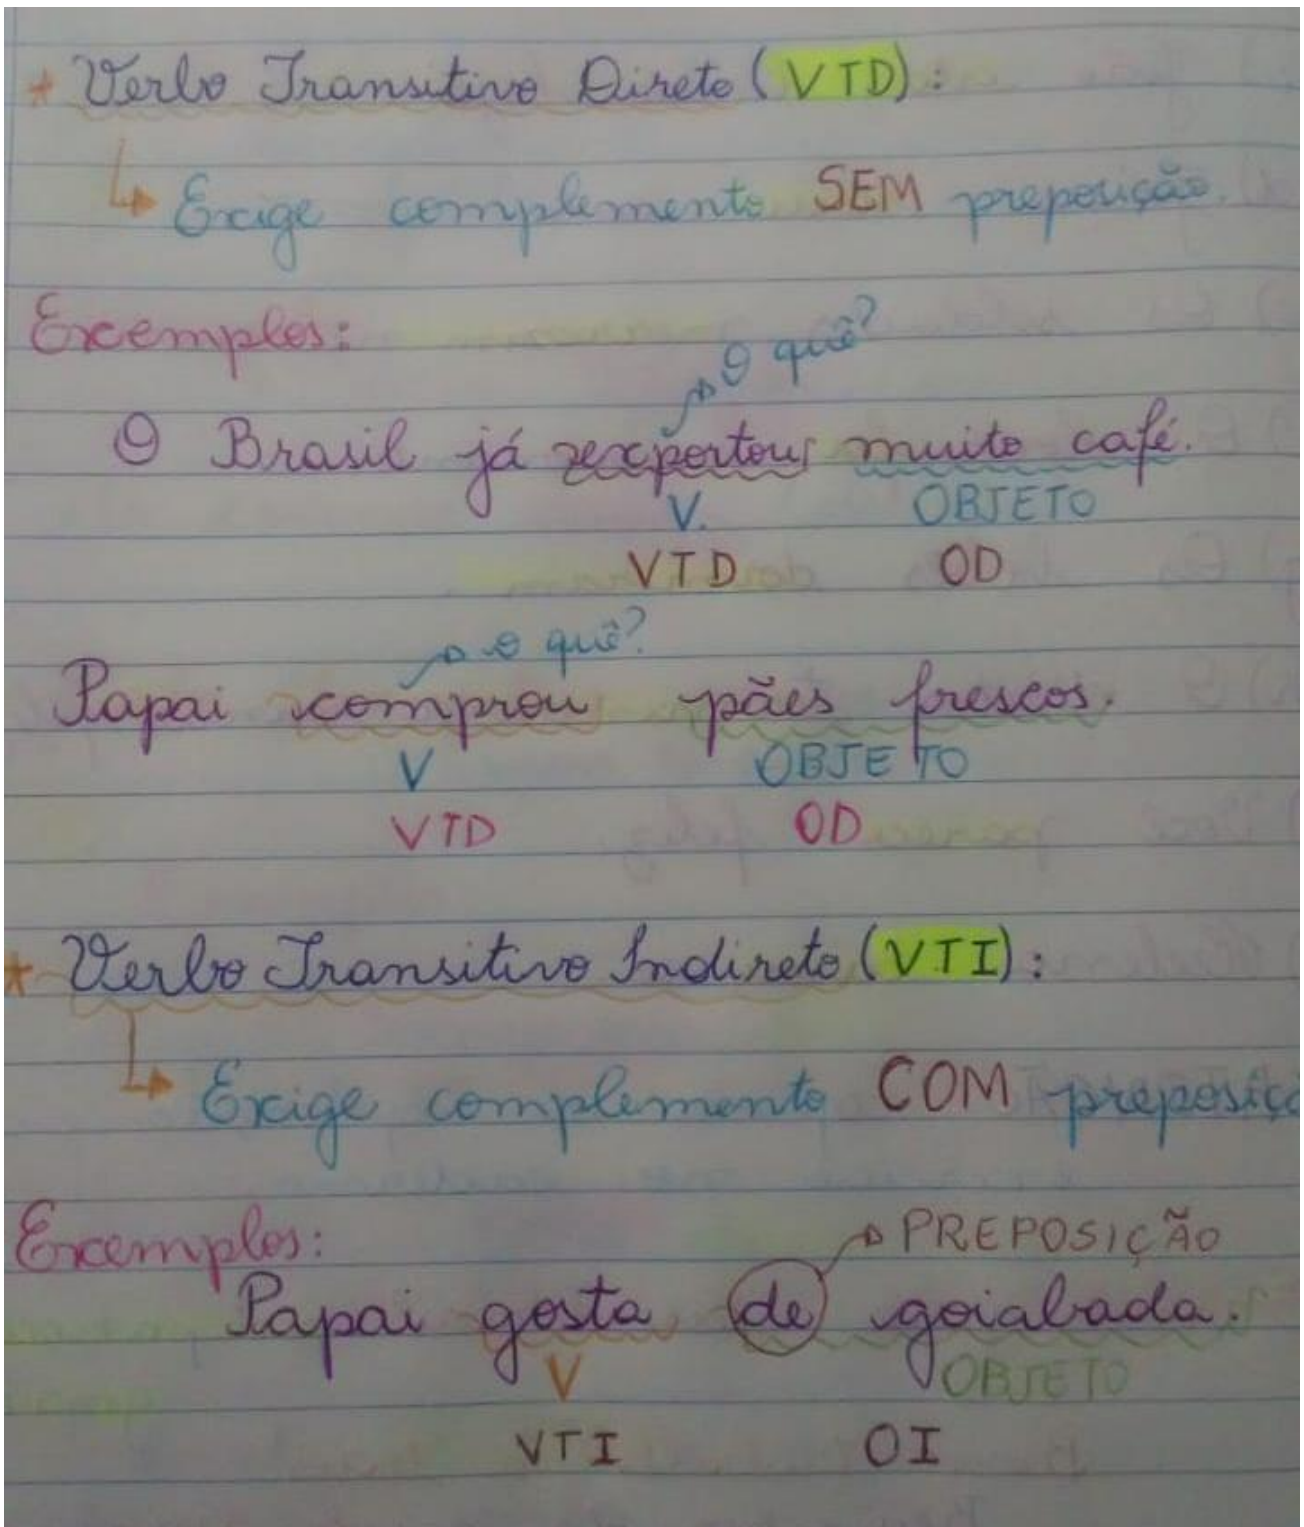 * Verbo Transitivo Direto (VTD):
↳ Exige complemento SEM preposição.
Exemplos:
O quê?
O Brasil já exportou muito café.
V. OBJETO
VTD OD
o quê?
Papai comprou pães frescos.
V OBJETO
VTD OD
* Verbo Transitivo Indireto (VTI):
↳ Exige complemento COM preposiçã
Exemplos:
PREPOSIÇÃO
Papai gosta de goiabada.
V OBJETO
VTI OI